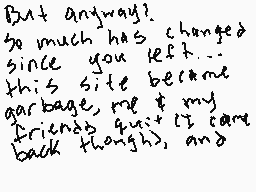 But anyway?
so much has changed
since you left...
this site became
garbage, me & my
friends quit (I came
back though), and